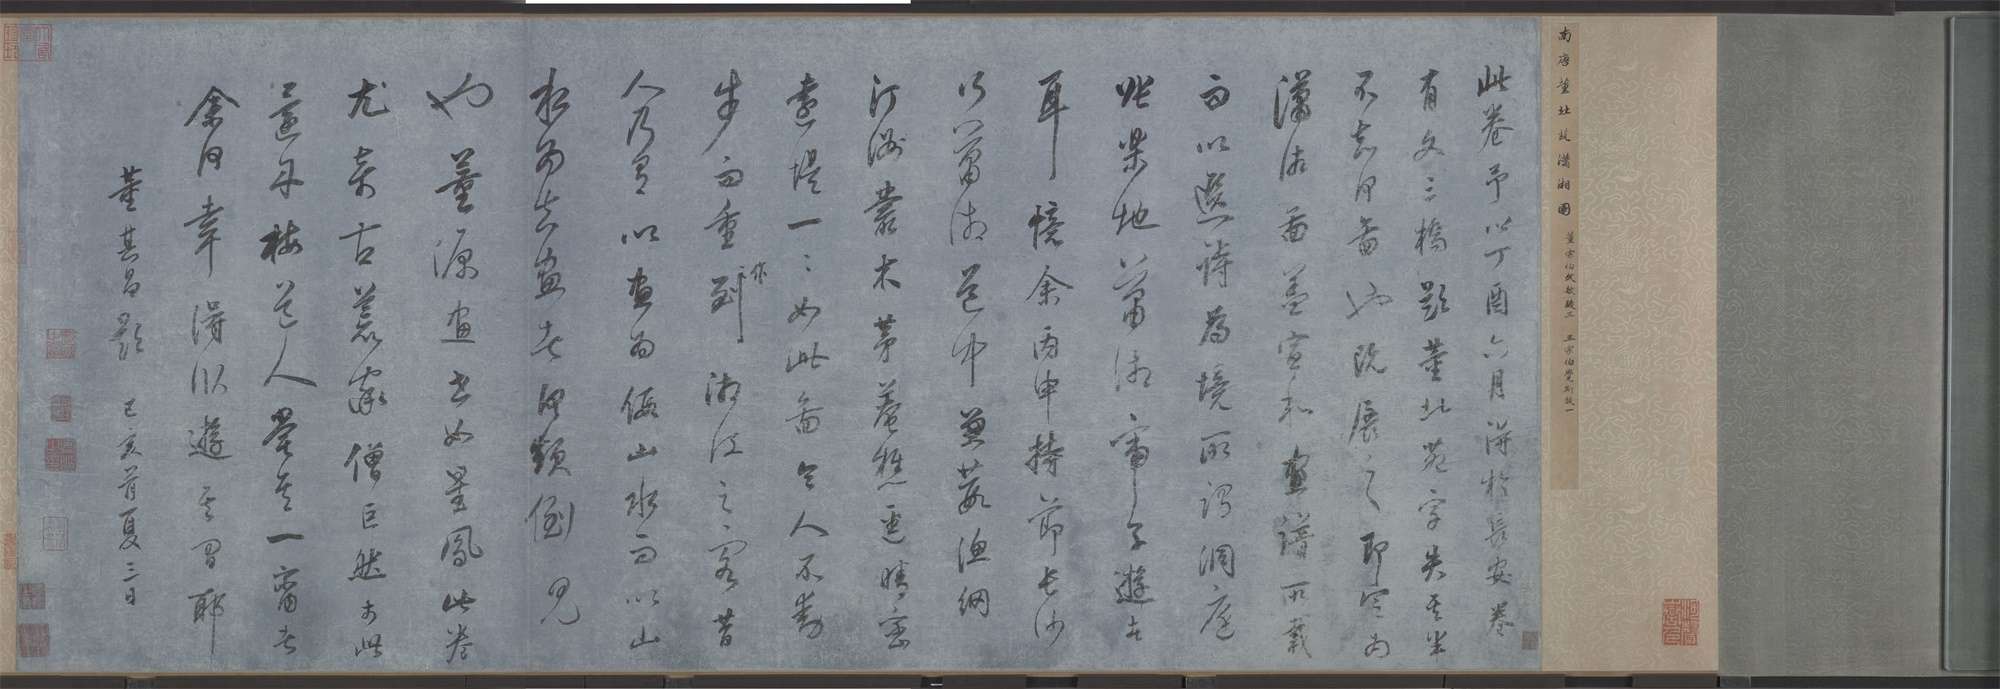 南唐董北苑瀟湘圖 董宗伯文敏跋三 王宗伯覺斯跋一
此卷予以丁酉六月得於長安卷
有文三橋題董北苑字失其半
不知何圖也既展之即定為
瀟湘圖蓋宣和畫譜所載
而以選詩為境所謂洞庭
張樂地瀟湘帝子遊者
耳憶余丙申持節長沙
行瀟湘道中蒹葭漁網
汀洲叢木茅菴樵徑晴巒
遠堤一一如此圖令人不動
步而重到作湘江之客昔
人乃有以畫為假山水而以山
水為真畫者何顛倒見
也董源畫世如星鳳此卷
尤奇古荒率僧巨然於此
還丹梅道人嘗其一臠者
余何幸得臥遊其間耶
董其昌題 己亥首夏三日